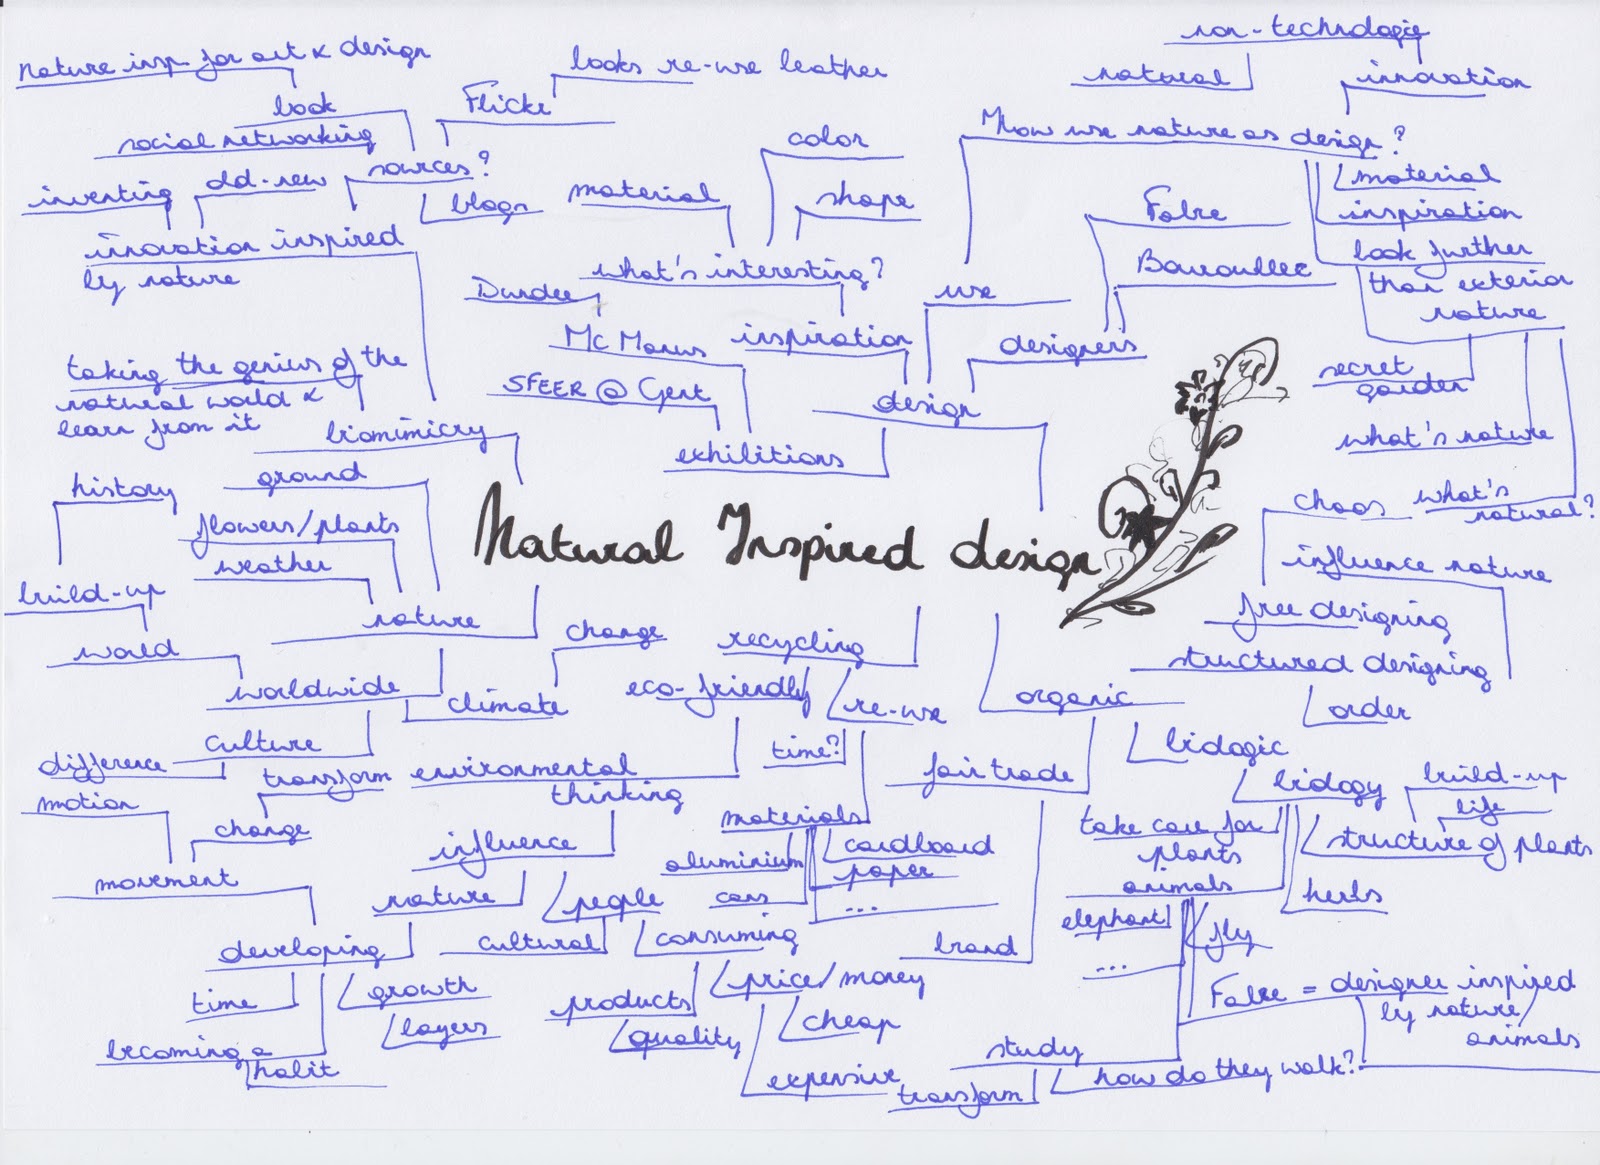 nature insp for art & design
look
social networking
Flickr
looks re-use leather
sources?
blogs
inventing
old-new
innovation inspired
by nature
taking the genius of the
natural world &
learn from it
biomimicry
material
color
shape
what's interesting?
inspiration
Dundee
Mc Manus
SFEER @ Gent
exhibitions
design
use
designers
Fabre
Bouroullec
non-technologie
natural
innovation
How use nature as design?
material
inspiration
look further
than exterior
nature
secret
garden
what's nature
what's
natural?
Natural Inspired design
history
ground
flowers/plants
weather
nature
build-up
world
worldwide
climate
change
culture
difference
transform
motion
change
movement
developing
time
growth
layers
becoming a
habit
recycling
eco-friendly
re-use
time?
environmental
thinking
influence
nature
people
cultural
consuming
products
quality
price/money
cheap
expensive
materials
aluminium
cans
cardboard
paper
...
organic
biologic
fair trade
brand
biology
build-up
life
structure of plants
herbs
take care for
plants
animals
elephant
fly
...
Fabre = designer inspired
by nature/
animals
study
transform
how do they walk?
chaos
influence nature
free designing
structured designing
order